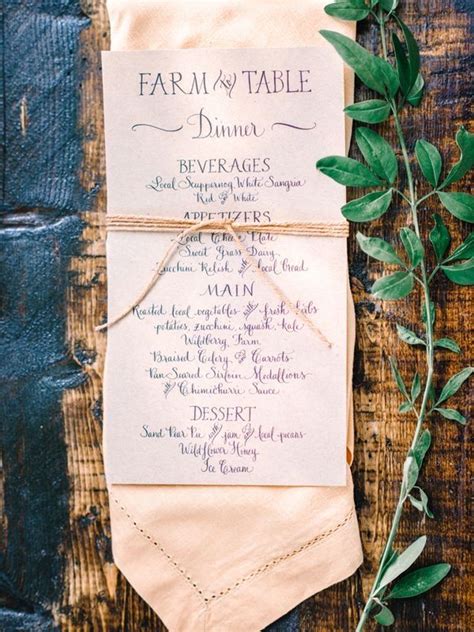 FARM to TABLE
Dinner
BEVERAGES
Local Scuppernog White Sangria
Red & White
APPETIZERS
Local Cheese Plate
Sweet Grass Dairy
Zucchini Relish with Local bread
MAIN
Roasted local vegetables with fresh herbs
potatoes, zucchini, squash, kale
Wildberry Farm
Braised Celery & Carrots
Pan Seared Sirloin Medallions
with Chimichurri Sauce
DESSERT
Sand Pear Pie with jam & local pecans
Wildflower Honey
Ice Cream